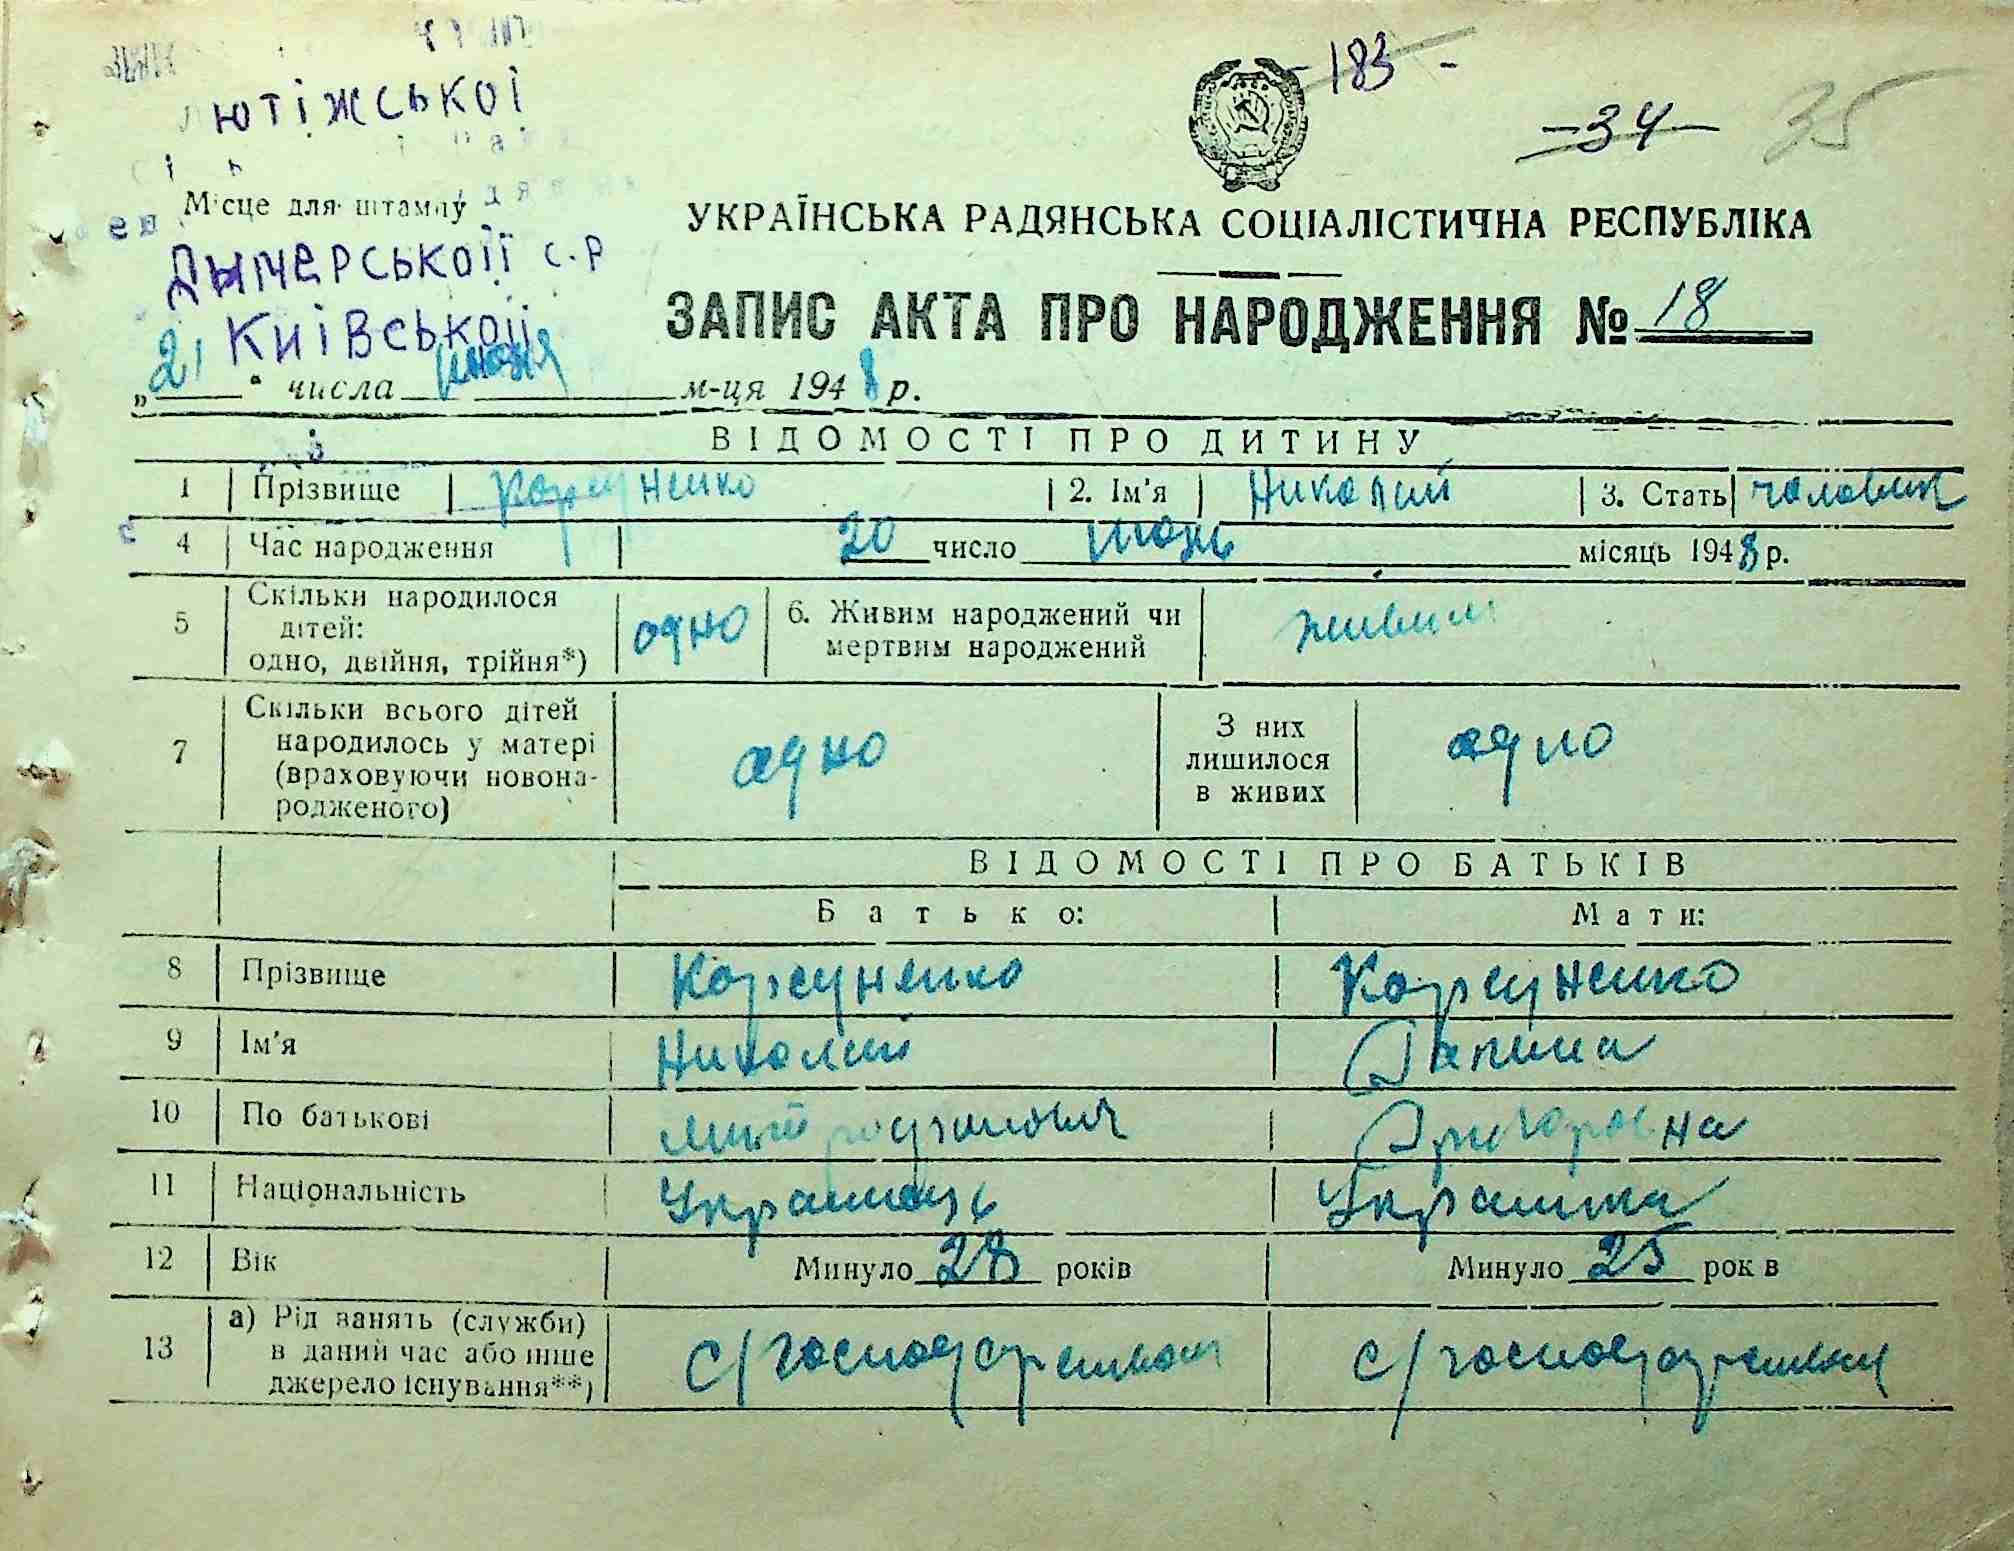 -183-
-34-
35
лютіжської
Місце для штампу
УКРАЇНСЬКА РАДЯНСЬКА СОЦІАЛІСТИЧНА РЕСПУБЛІКА
Дымерської с.р
Київської
ЗАПИС АКТА ПРО НАРОДЖЕННЯ № 18
„21" числа июня м-ця 1948 р.
ВІДОМОСТІ ПРО ДИТИНУ
1 Прізвище Корсуненко 2. Ім'я Николий 3. Стать чоловик
4 Час народження 20 число июнь місяць 1948 р.
5 Скільки народилося дітей: одно, двійня, трійня*) одно 6. Живим народжений чи мертвим народжений живим
7 Скільки всього дітей народилось у матері (враховуючи новонародженого) одно З них лишилося в живих одно
ВІДОМОСТІ ПРО БАТЬКІВ
Батько: Мати:
8 Прізвище Корсуненко Корсуненко
9 Ім'я Николий Галина
10 По батькові Митрофанович Григоровна
11 Національність Украинец Украинка
12 Вік Минуло 28 років Минуло 25 років
13 а) Рід занять (служби) в даний час або інше джерело існування**) с/господ с/господ